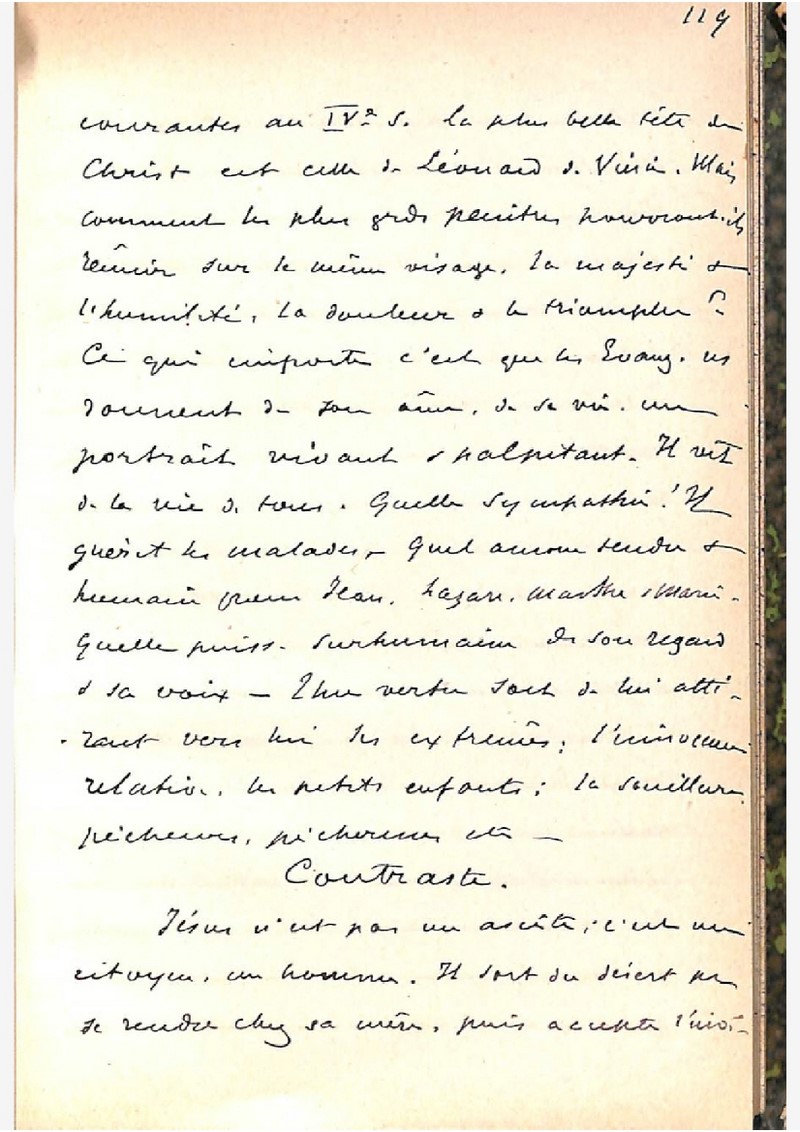 119
courantes au IVe s. La plus belle tête du
Christ est celle de Léonard de Vinci. Mais
comment les plus grds peintres pourront-ils
réunir sur le même visage, la majesté &
l'humilité, la douleur & le triomphe ?
Ce qui importe c'est que les Evang. ns
donnent de son âme, de sa vie, un
portrait vivant & palpitant. Il vit
de la vie de tous. Quelle sympathie ! Il
guérit les malades, Quel amour tendre &
humain pour Jean, Lazare, Marthe & Marie.
Quelle puiss. surhumaine de son regard
& sa voix — Une vertu sort de lui atti-
rant vers lui les extrêmes ; l'innocence
relative, les petits enfants ; la souillure,
pécheurs, pécheresses etc —
Contraste.
Jésus n'est pas un ascète, c'est un
citoyen, un homme. Il sort du désert pr
se rendre chez sa mère, puis accepte l'invi-